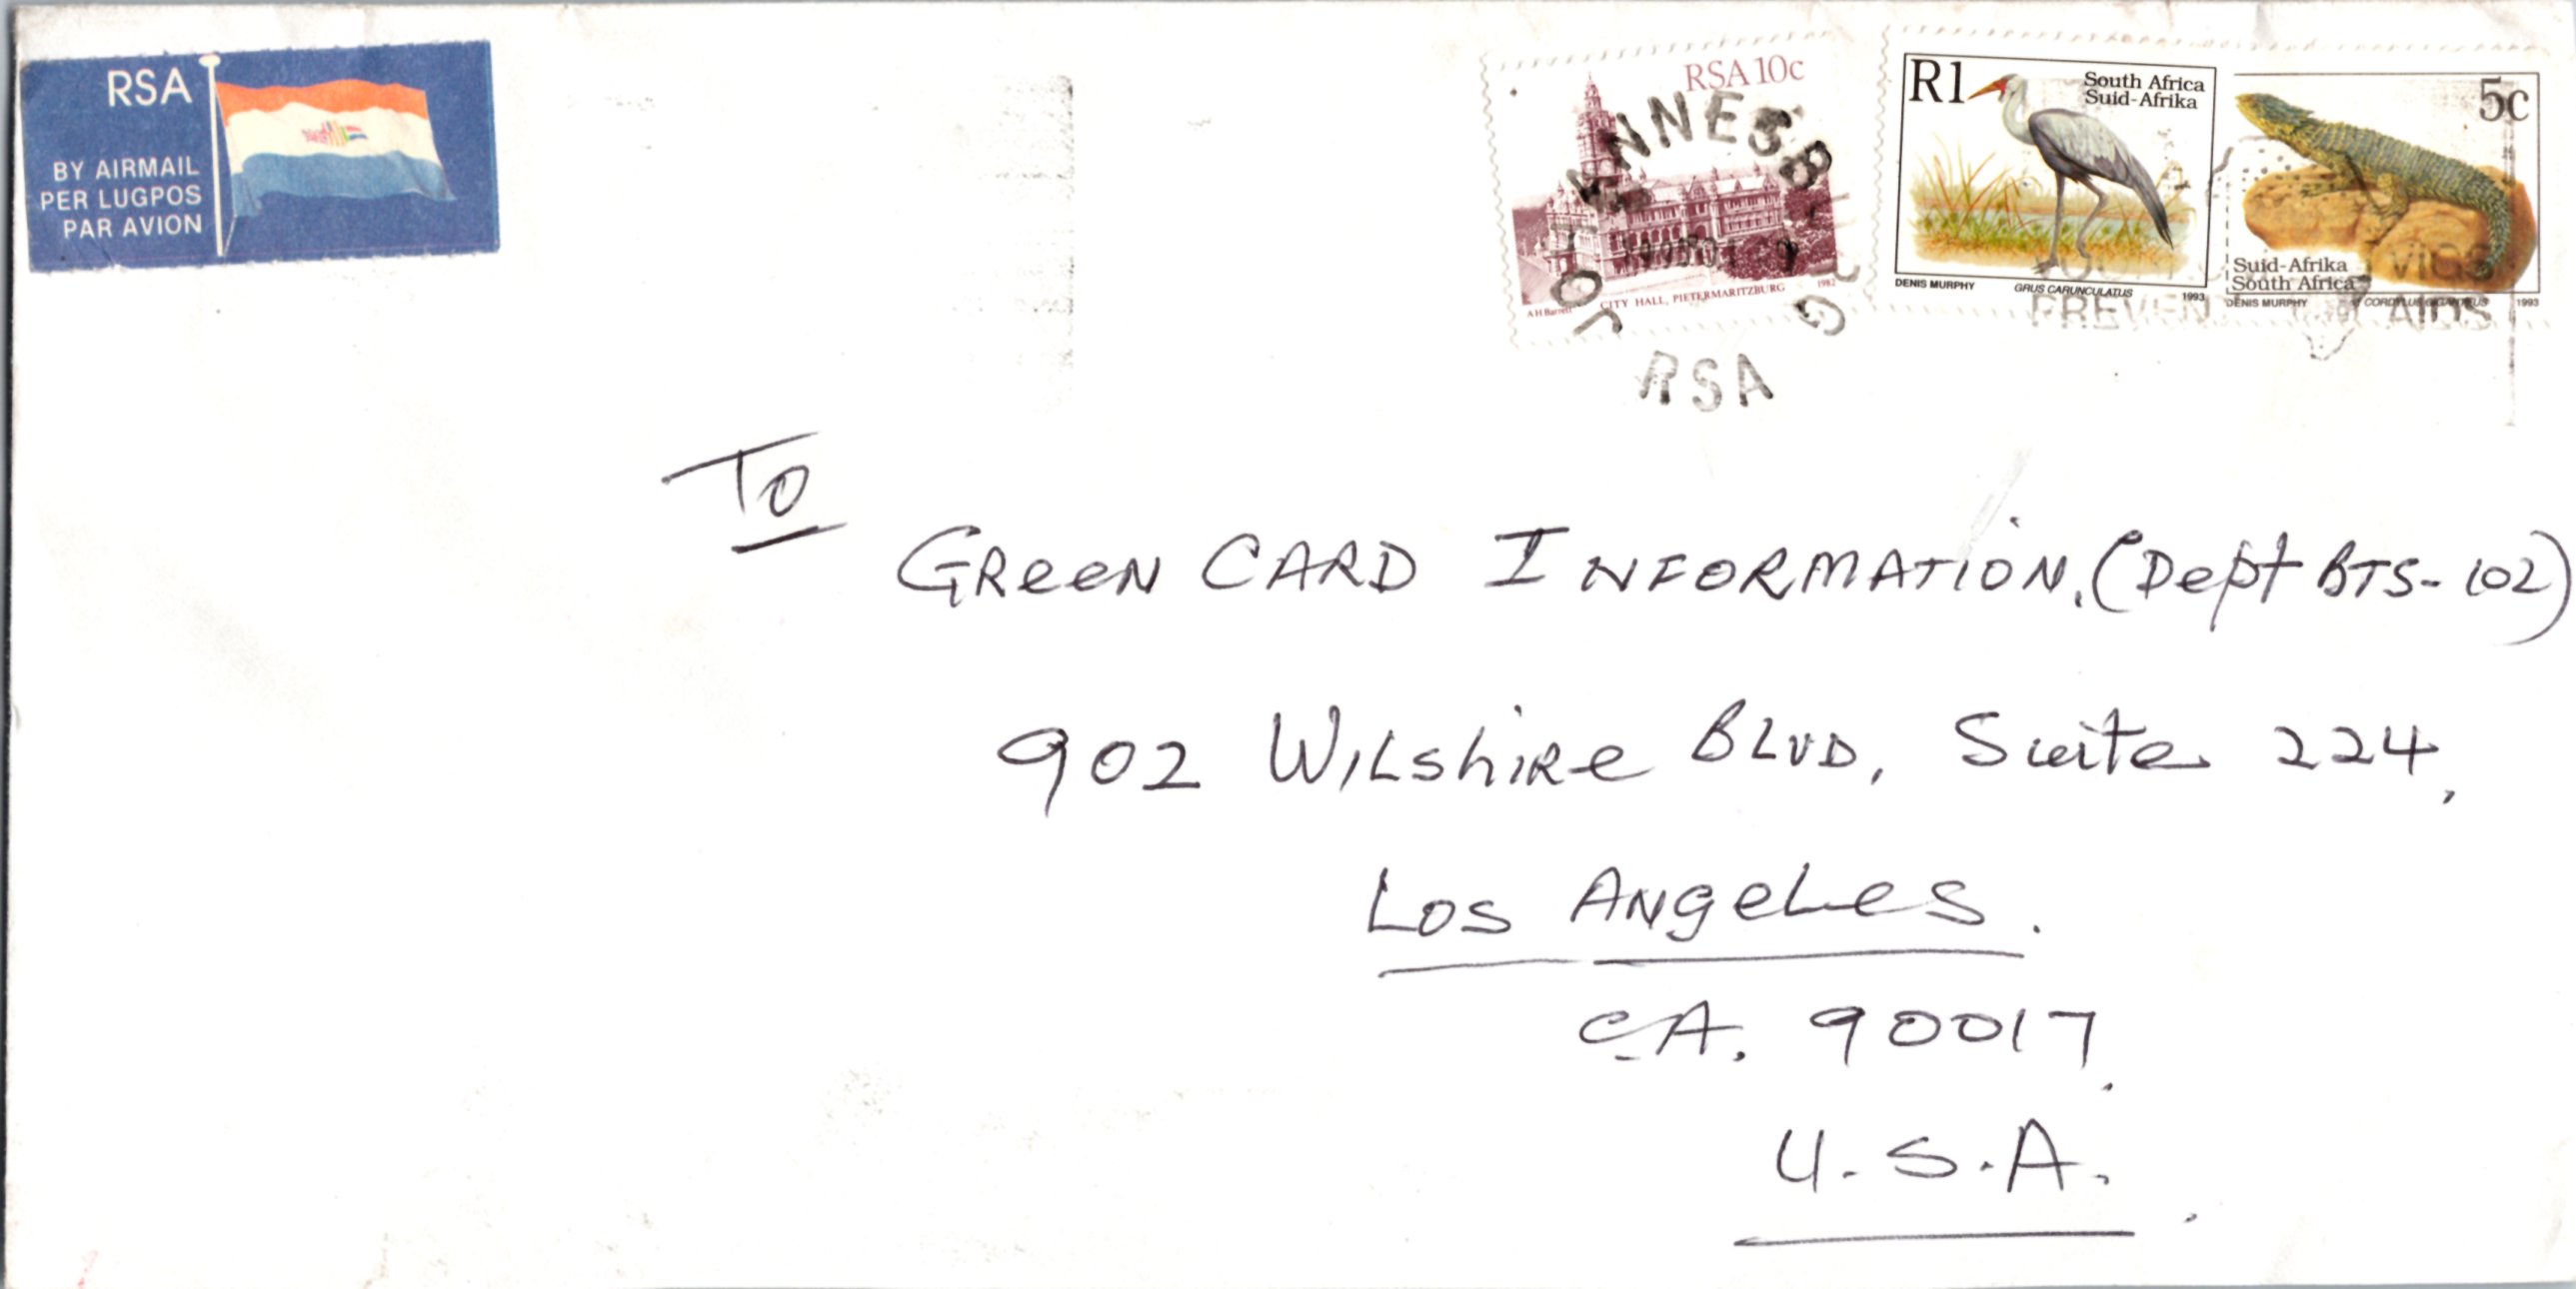 RSA
BY AIRMAIL
PER LUGPOS
PAR AVION
RSA 10c
CITY HALL, PIETERMARITZBURG
A H Barrett
1982
R1
South Africa
Suid-Afrika
DENIS MURPHY GRUS CARUNCULATUS 1993
5c
Suid-Afrika
South Africa
DENIS MURPHY CORDYLUS GIGANTEUS 1993
JOHANNESBURG
RSA
AIDS
To
GReeN CARD INFORMATION, (Dept BTS-102)
902 WILshiRe BLVD, Suite 224,
Los ANgeLes.
CA. 90017.
U.S.A.